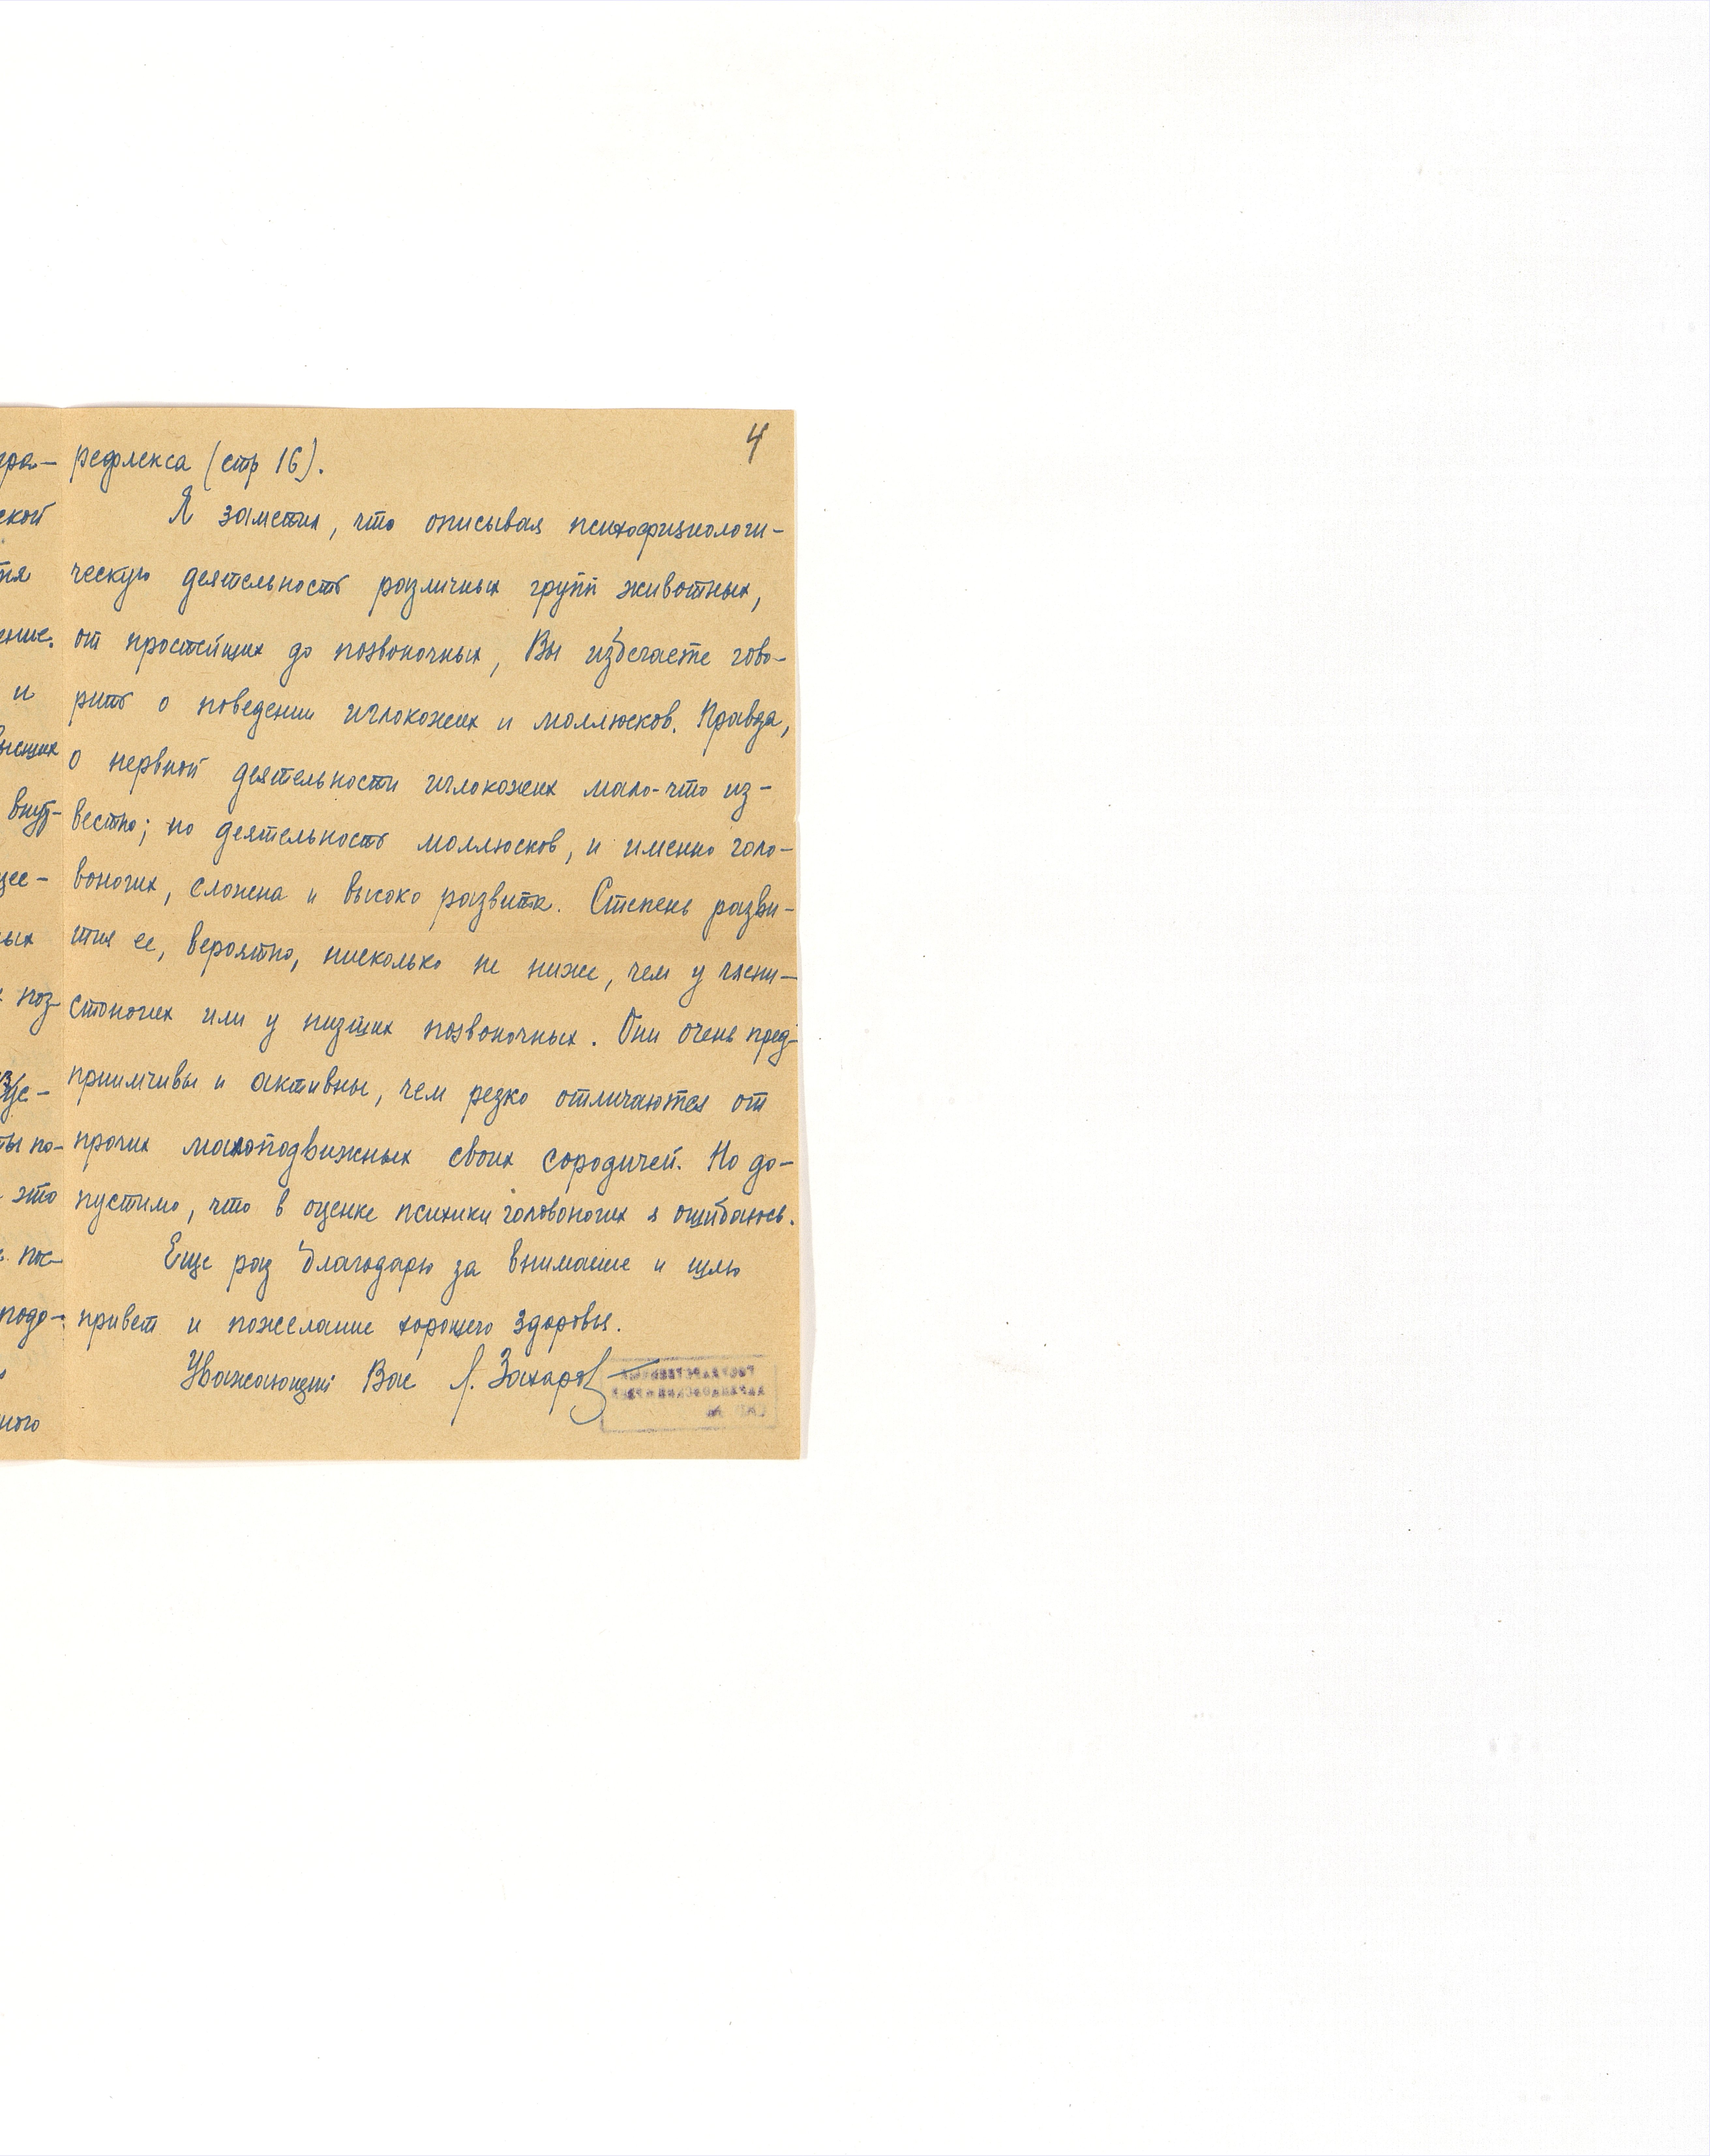 4
рефлекса (стр 16).
Я заметил, что описывая психофизиологи-
ческую деятельность различных групп животных,
от простейших до позвоночных, Вы избегаете гово-
рить о поведении иглокожих и моллюсков. Правда,
о нервной деятельности иглокожих мало-что из-
вестно; но деятельность моллюсков, и именно голо-
воногих, сложна и высоко развита. Степень разви-
тия ее, вероятно, нисколько не ниже, чем у члени-
стоногих или у низших позвоночных. Они очень пред-
приимчивы и активны, чем резко отличаются от
прочих малоподвижных своих сородичей. Но до-
пустимо, что в оценке психики головоногих я ошибаюсь.
Еще раз благодарю за внимание и шлю
привет и пожелание хорошего здоровья.
Уважающий Вас Л. Захаров
ской
ение.
и
высших
внут-
ных
поз-
ты по-
это
пос-
подо-
ного